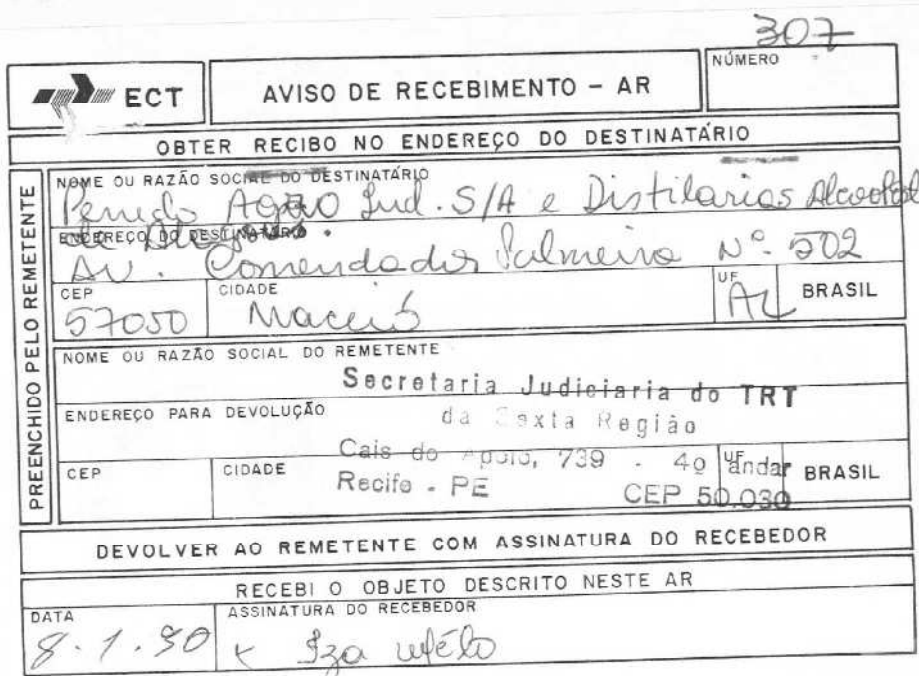 307
ECT
AVISO DE RECEBIMENTO – AR
NÚMERO
OBTER RECIBO NO ENDEREÇO DO DESTINATÁRIO
PREENCHIDO PELO REMETENTE
NOME OU RAZÃO SOCIAL DO DESTINATÁRIO
Penedo Agro Ind. S/A e Distilarias
ENDEREÇO DO DESTINATÁRIO
de
Av. Comendador Palmeira Nº 502
CEP
CIDADE
UF
57050
Maceió
AL
BRASIL
NOME OU RAZÃO SOCIAL DO REMETENTE
Secretaria Judiciaria do TRT
ENDEREÇO PARA DEVOLUÇÃO
da Sexta Região
Cais do Apolo, 739 - 4º andar
CEP
CIDADE
UF
BRASIL
Recife - PE CEP 50.030
DEVOLVER AO REMETENTE COM ASSINATURA DO RECEBEDOR
RECEBI O OBJETO DESCRITO NESTE AR
DATA
ASSINATURA DO RECEBEDOR
8.1.90
x Iza Mélo